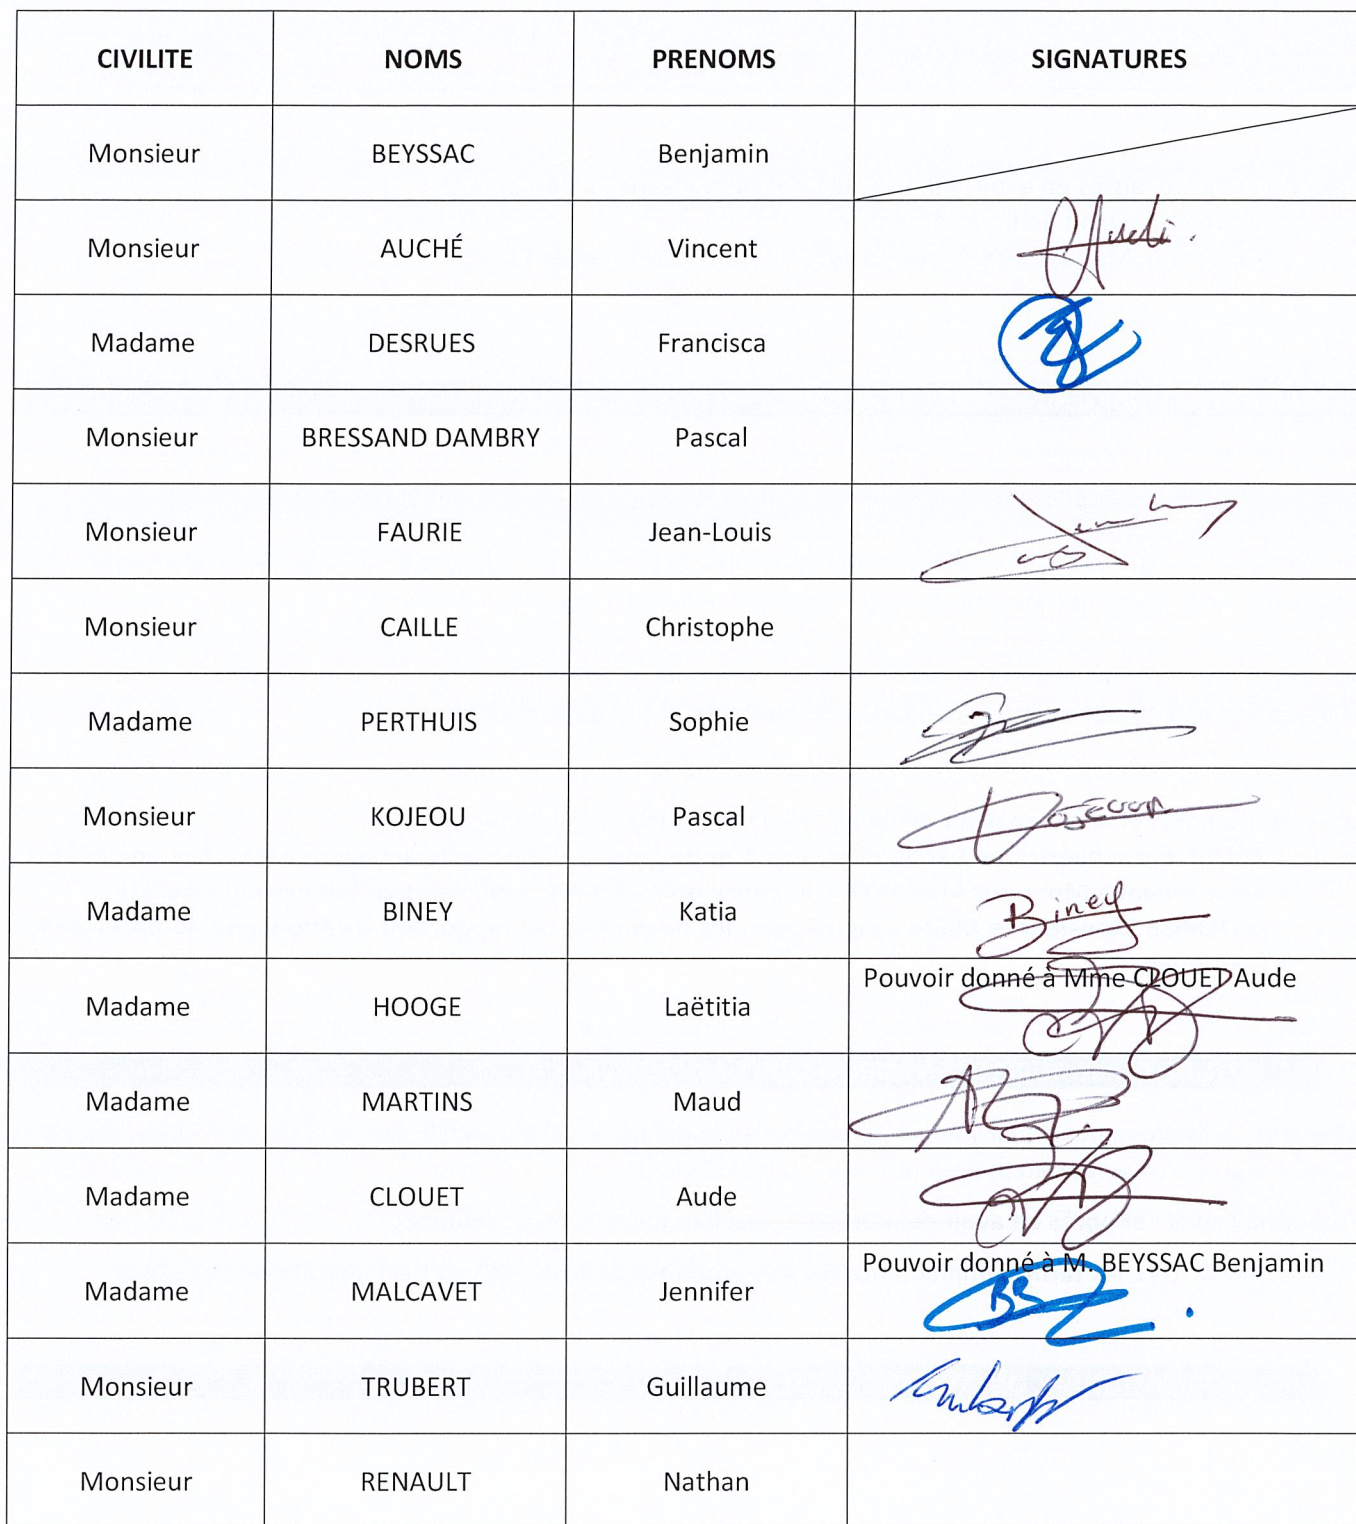 CIVILITE NOMS PRENOMS SIGNATURES
Monsieur BEYSSAC Benjamin
Monsieur AUCHÉ Vincent
Madame DESRUES Francisca
Monsieur BRESSAND DAMBRY Pascal
Monsieur FAURIE Jean-Louis
Monsieur CAILLE Christophe
Madame PERTHUIS Sophie
Monsieur KOJEOU Pascal
Madame BINEY Katia Biney
Pouvoir donné à Mme CLOUET Aude
Madame HOOGE Laëtitia
Madame MARTINS Maud
Madame CLOUET Aude
Pouvoir donné à M. BEYSSAC Benjamin
Madame MALCAVET Jennifer BB
Monsieur TRUBERT Guillaume
Monsieur RENAULT Nathan